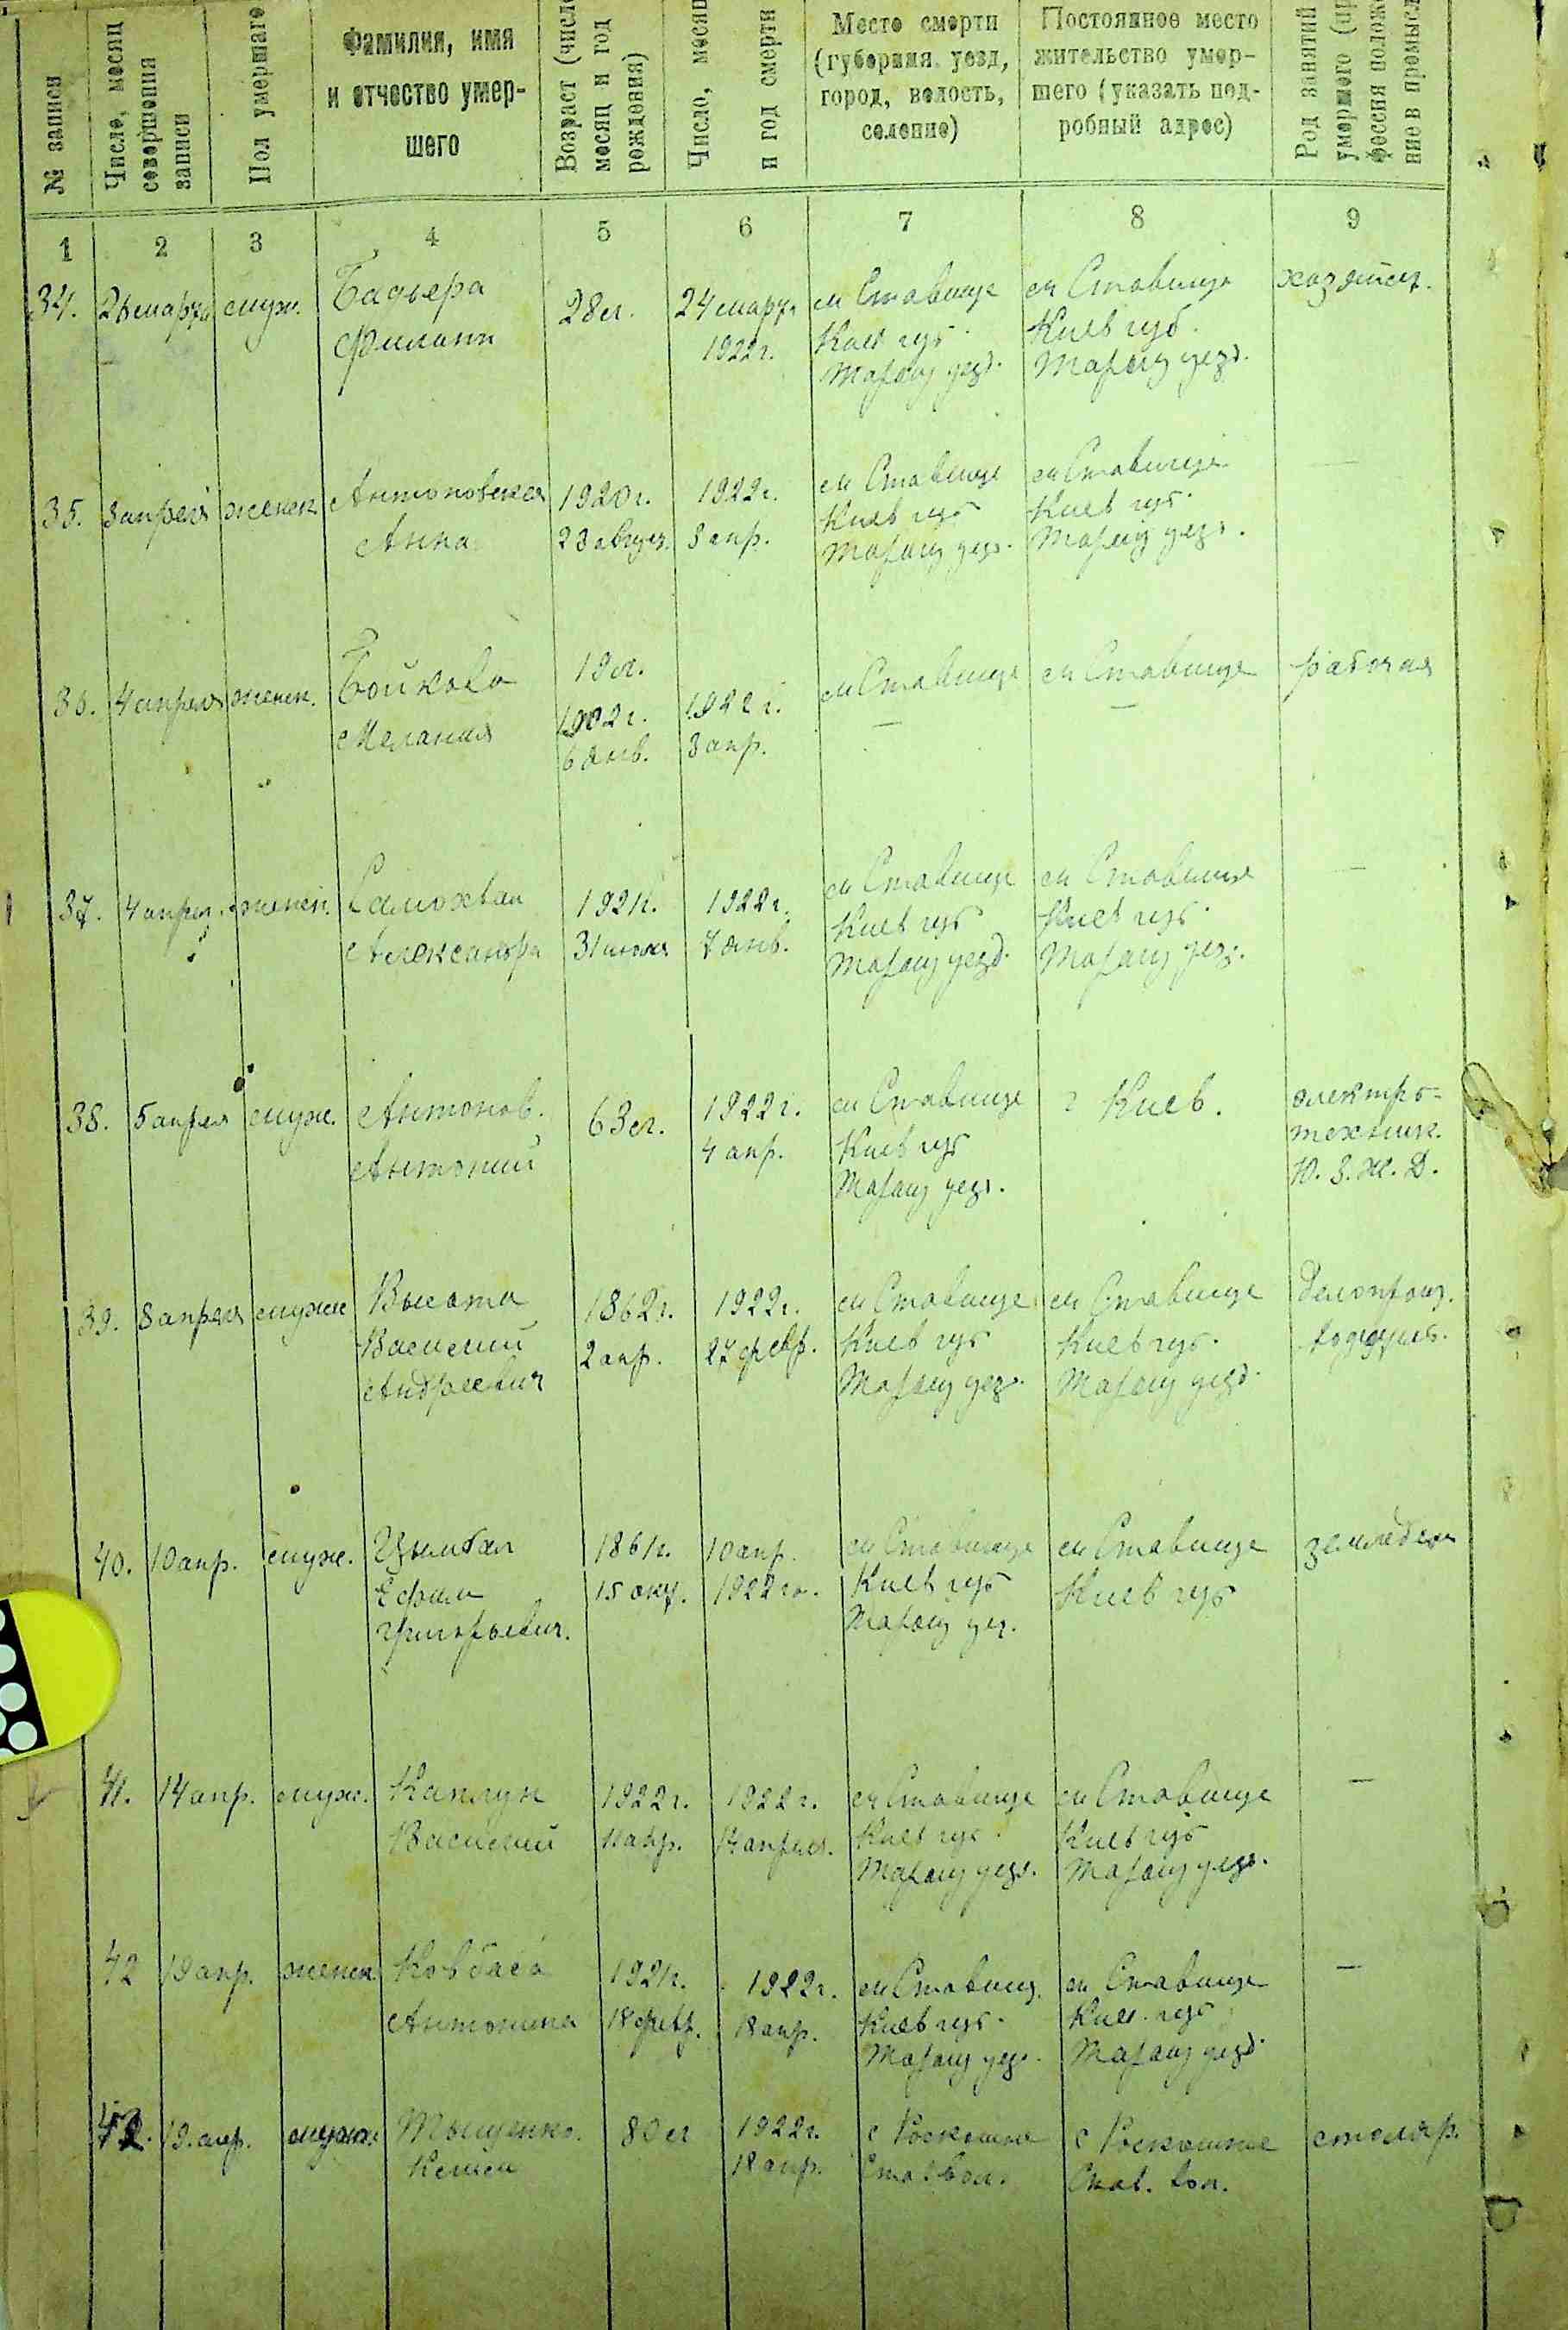 № записи
Число, месяц совершения записи
Пол умершаго
Фамилия, имя и отчество умершего
Возраст (число месяц и год рождения)
Число, месяц и год смерти
Место смерти (губерния, уезд, город, волость, селение)
Постоянное место жительство умершего (указать подробный адрес)
Род занятий умершего
1 2 3 4 5 6 7 8 9
34. 26 марта муж. 28 л. 24 март. м Ставище м Ставище
1922 г. Киев губ. Киев губ.
Таращ уезд. Таращ уезд.
35. 3 апреля женск Антоновская 1920 г. 1922 г. м Ставище м Ставище —
Анна 23 август. 3 апр. Киев губ Киев губ.
Таращ уез. Таращ уез.
36. 4 апреля женск. Бойково 19 л. м Ставище м Ставище рабочая
Мелания 1902 г. 1922 г. — —
6 янв. 3 апр.
37. 4 апрел. женск. Самохвал 1921 г. 1922 г. м Ставище м Ставище —
Александра 31 7 янв. Киев губ Киев губ.
Таращ уезд. Таращ уез.
38. 5 апреля муж. Антонов. 63 л. 1922 г. м Ставище г Киев. электро-
Антоний 4 апр. Киев губ техник.
Таращ уез. Ю. З. Ж. Д.
39. 8 апреля муж Высота 1862 г. 1922 г. м Ставище м Ставище делопроиз.
Василий 2 апр. 27 февр. Киев губ Киев губ.
Андреевич Таращ уез. Таращ уезд.
40. 10 апр. муж. Цымбал 1861 г. 10 апр. м Ставище м Ставище земледел
Ефим 15 окт. 1922 го. Киев губ Киев губ
Григорьевич. Таращ уез.
41. 14 апр. муж. Каплун 1922 г. 1922 г. м Ставище м Ставище —
Василий 11 апр. 14 апрел. Киев губ. Киев губ
Таращ уезд. Таращ уез.
42 19 апр. женск Ковбаса 1921 г. 1922 г. м Ставищ. м Ставище —
Антонина 18 февр. 18 апр. Киев губ. Киев. губ
Таращ уез. Таращ уезд.
19. апр. муж. Тыщенко. 80 л 1922 г. с Роскошна с Роскошна столяр.
18 апр. Став вол. Став. вол.